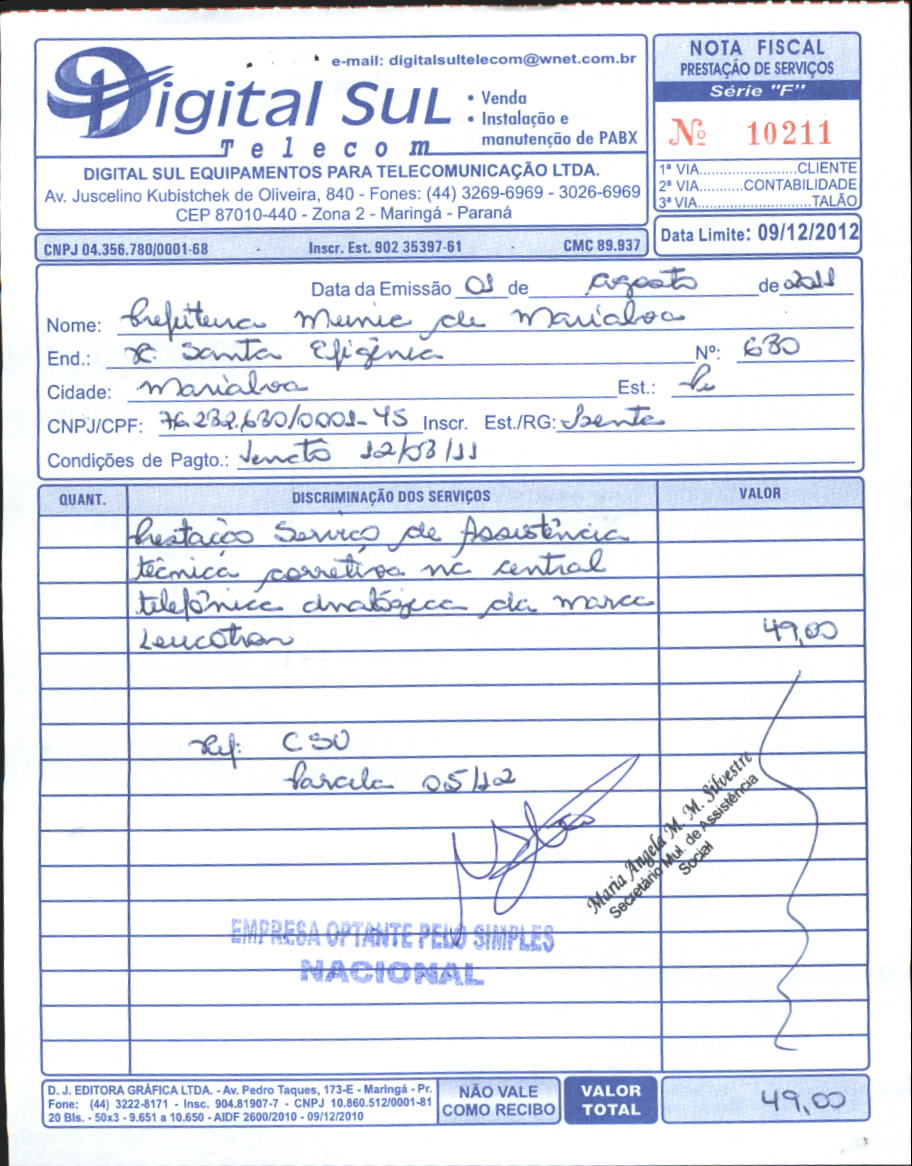 e-mail: digitalsultelecom@wnet.com.br
Digital Sul
Telecom
• Venda
• Instalação e
manutenção de PABX
DIGITAL SUL EQUIPAMENTOS PARA TELECOMUNICAÇÃO LTDA.
Av. Juscelino Kubistchek de Oliveira, 840 - Fones: (44) 3269-6969 - 3026-6969
CEP 87010-440 - Zona 2 - Maringá - Paraná
NOTA FISCAL
PRESTAÇÃO DE SERVIÇOS
Série "F"
Nº 10211
1ª VIA.......................CLIENTE
2ª VIA..........CONTABILIDADE
3ª VIA.........................TALÃO
CNPJ 04.356.780/0001-68 - Inscr. Est. 902 35397-61 - CMC 89.937
Data Limite: 09/12/2012
Data da Emissão 01 de agosto de 2011
Nome: Prefitura Munic de Marialva
End.: R. Santa Efigênia Nº: 680
Cidade: Marialva Est.: Pr
CNPJ/CPF: 76.282.680/0001-45 Inscr. Est./RG: Isenta
Condições de Pagto.: Vencto 12/08/11
QUANT. DISCRIMINAÇÃO DOS SERVIÇOS VALOR
Prestação Serviço de Assistência
técnica corretiva na central
telefônica analógica da marca
Leucotron 49,00
Ref: CSU
Parcela 05/12
Maria Angela M. M. Silvestre
Secretário Mul. de Assistência
Social
EMPRESA OPTANTE PELO SIMPLES
NACIONAL
D. J. EDITORA GRÁFICA LTDA. - Av. Pedro Taques, 173-E - Maringá - Pr.
Fone: (44) 3222-8171 - Insc. 904.81907-7 - CNPJ 10.860.512/0001-81
20 Bls. - 50x3 - 9.651 a 10.650 - AIDF 2600/2010 - 09/12/2010
NÃO VALE
COMO RECIBO
VALOR
TOTAL
49,00